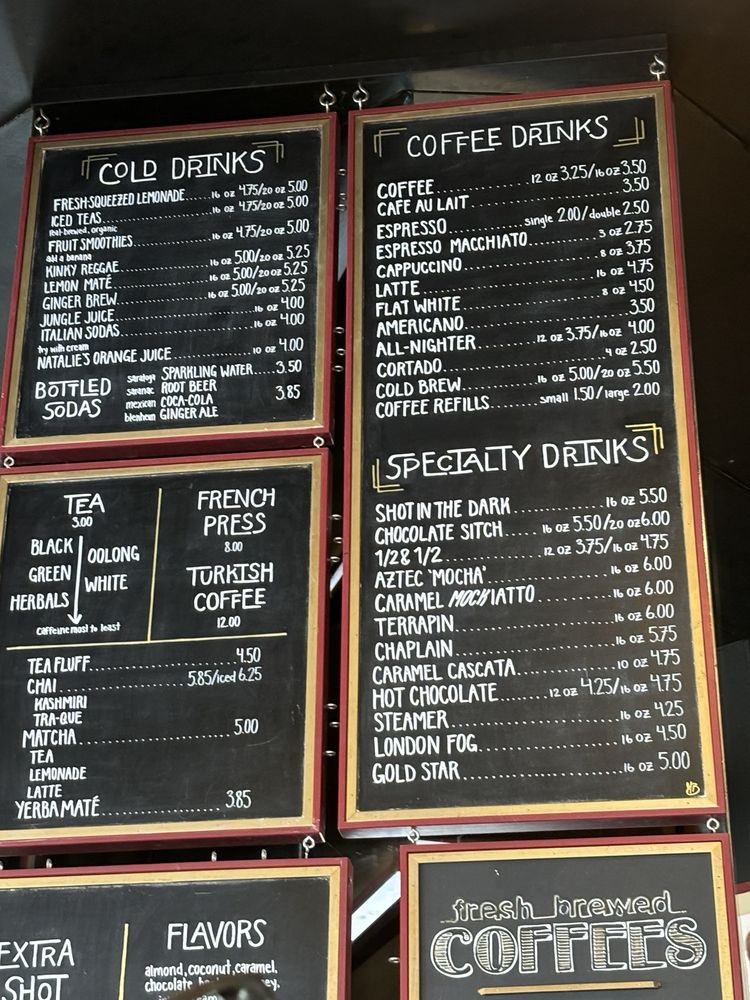 COLD DRINKS
FRESH-SQUEEZED LEMONADE......16 oz 4.75/20 oz 5.00
ICED TEAS......16 oz 4.75/20 oz 5.00
real-brewed, organic
FRUIT SMOOTHIES......16 oz 4.75/20 oz 5.00
add a banana
KINKY REGGAE......16 oz 5.00/20 oz 5.25
LEMON MATÉ......16 oz 5.00/20 oz 5.25
GINGER BREW......16 oz 5.00/20 oz 5.25
JUNGLE JUICE......16 oz 4.00
ITALIAN SODAS......16 oz 4.00
try with cream
NATALIE'S ORANGE JUICE......10 oz 4.00
BOTTLED SODAS
saratoga SPARKLING WATER....3.50
saranac ROOT BEER
mexican COCA-COLA 3.85
blenheim GINGER ALE
TEA
3.00
BLACK
OOLONG
GREEN
WHITE
HERBALS
caffeine most to least
FRENCH
PRESS
8.00
TURKISH
COFFEE
12.00
TEA FLUFF......4.50
CHAI......5.85/iced 6.25
KASHMIRI
TRA-QUE
MATCHA......5.00
TEA
LEMONADE
LATTE
YERBA MATÉ......3.85
EXTRA
SHOT
FLAVORS
almond, coconut, caramel,
chocolate,
COFFEE DRINKS
COFFEE......12 oz 3.25/16 oz 3.50
CAFE AU LAIT 3.50
ESPRESSO......single 2.00/double 2.50
ESPRESSO MACCHIATO......3 oz 2.75
CAPPUCCINO......8 oz 3.75
LATTE......16 oz 4.75
FLAT WHITE......8 oz 4.50
AMERICANO......3.50
ALL-NIGHTER......12 oz 3.75/16 oz 4.00
CORTADO......4 oz 2.50
COLD BREW......16 oz 5.00/20 oz 5.50
COFFEE REFILLS......small 1.50/large 2.00
SPECIALTY DRINKS
SHOT IN THE DARK......16 oz 5.50
CHOCOLATE SITCH......16 oz 5.50/20 oz 6.00
1/2 & 1/2......12 oz 3.75/16 oz 4.75
AZTEC 'MOCHA'......16 oz 6.00
CARAMEL MOCKIATTO......16 oz 6.00
TERRAPIN......16 oz 6.00
CHAPLAIN......16 oz 5.75
CARAMEL CASCATA......10 oz 4.75
HOT CHOCOLATE......12 oz 4.25/16 oz 4.75
STEAMER......16 oz 4.25
LONDON FOG......16 oz 4.50
GOLD STAR......16 oz 5.00
fresh brewed
COFFEES